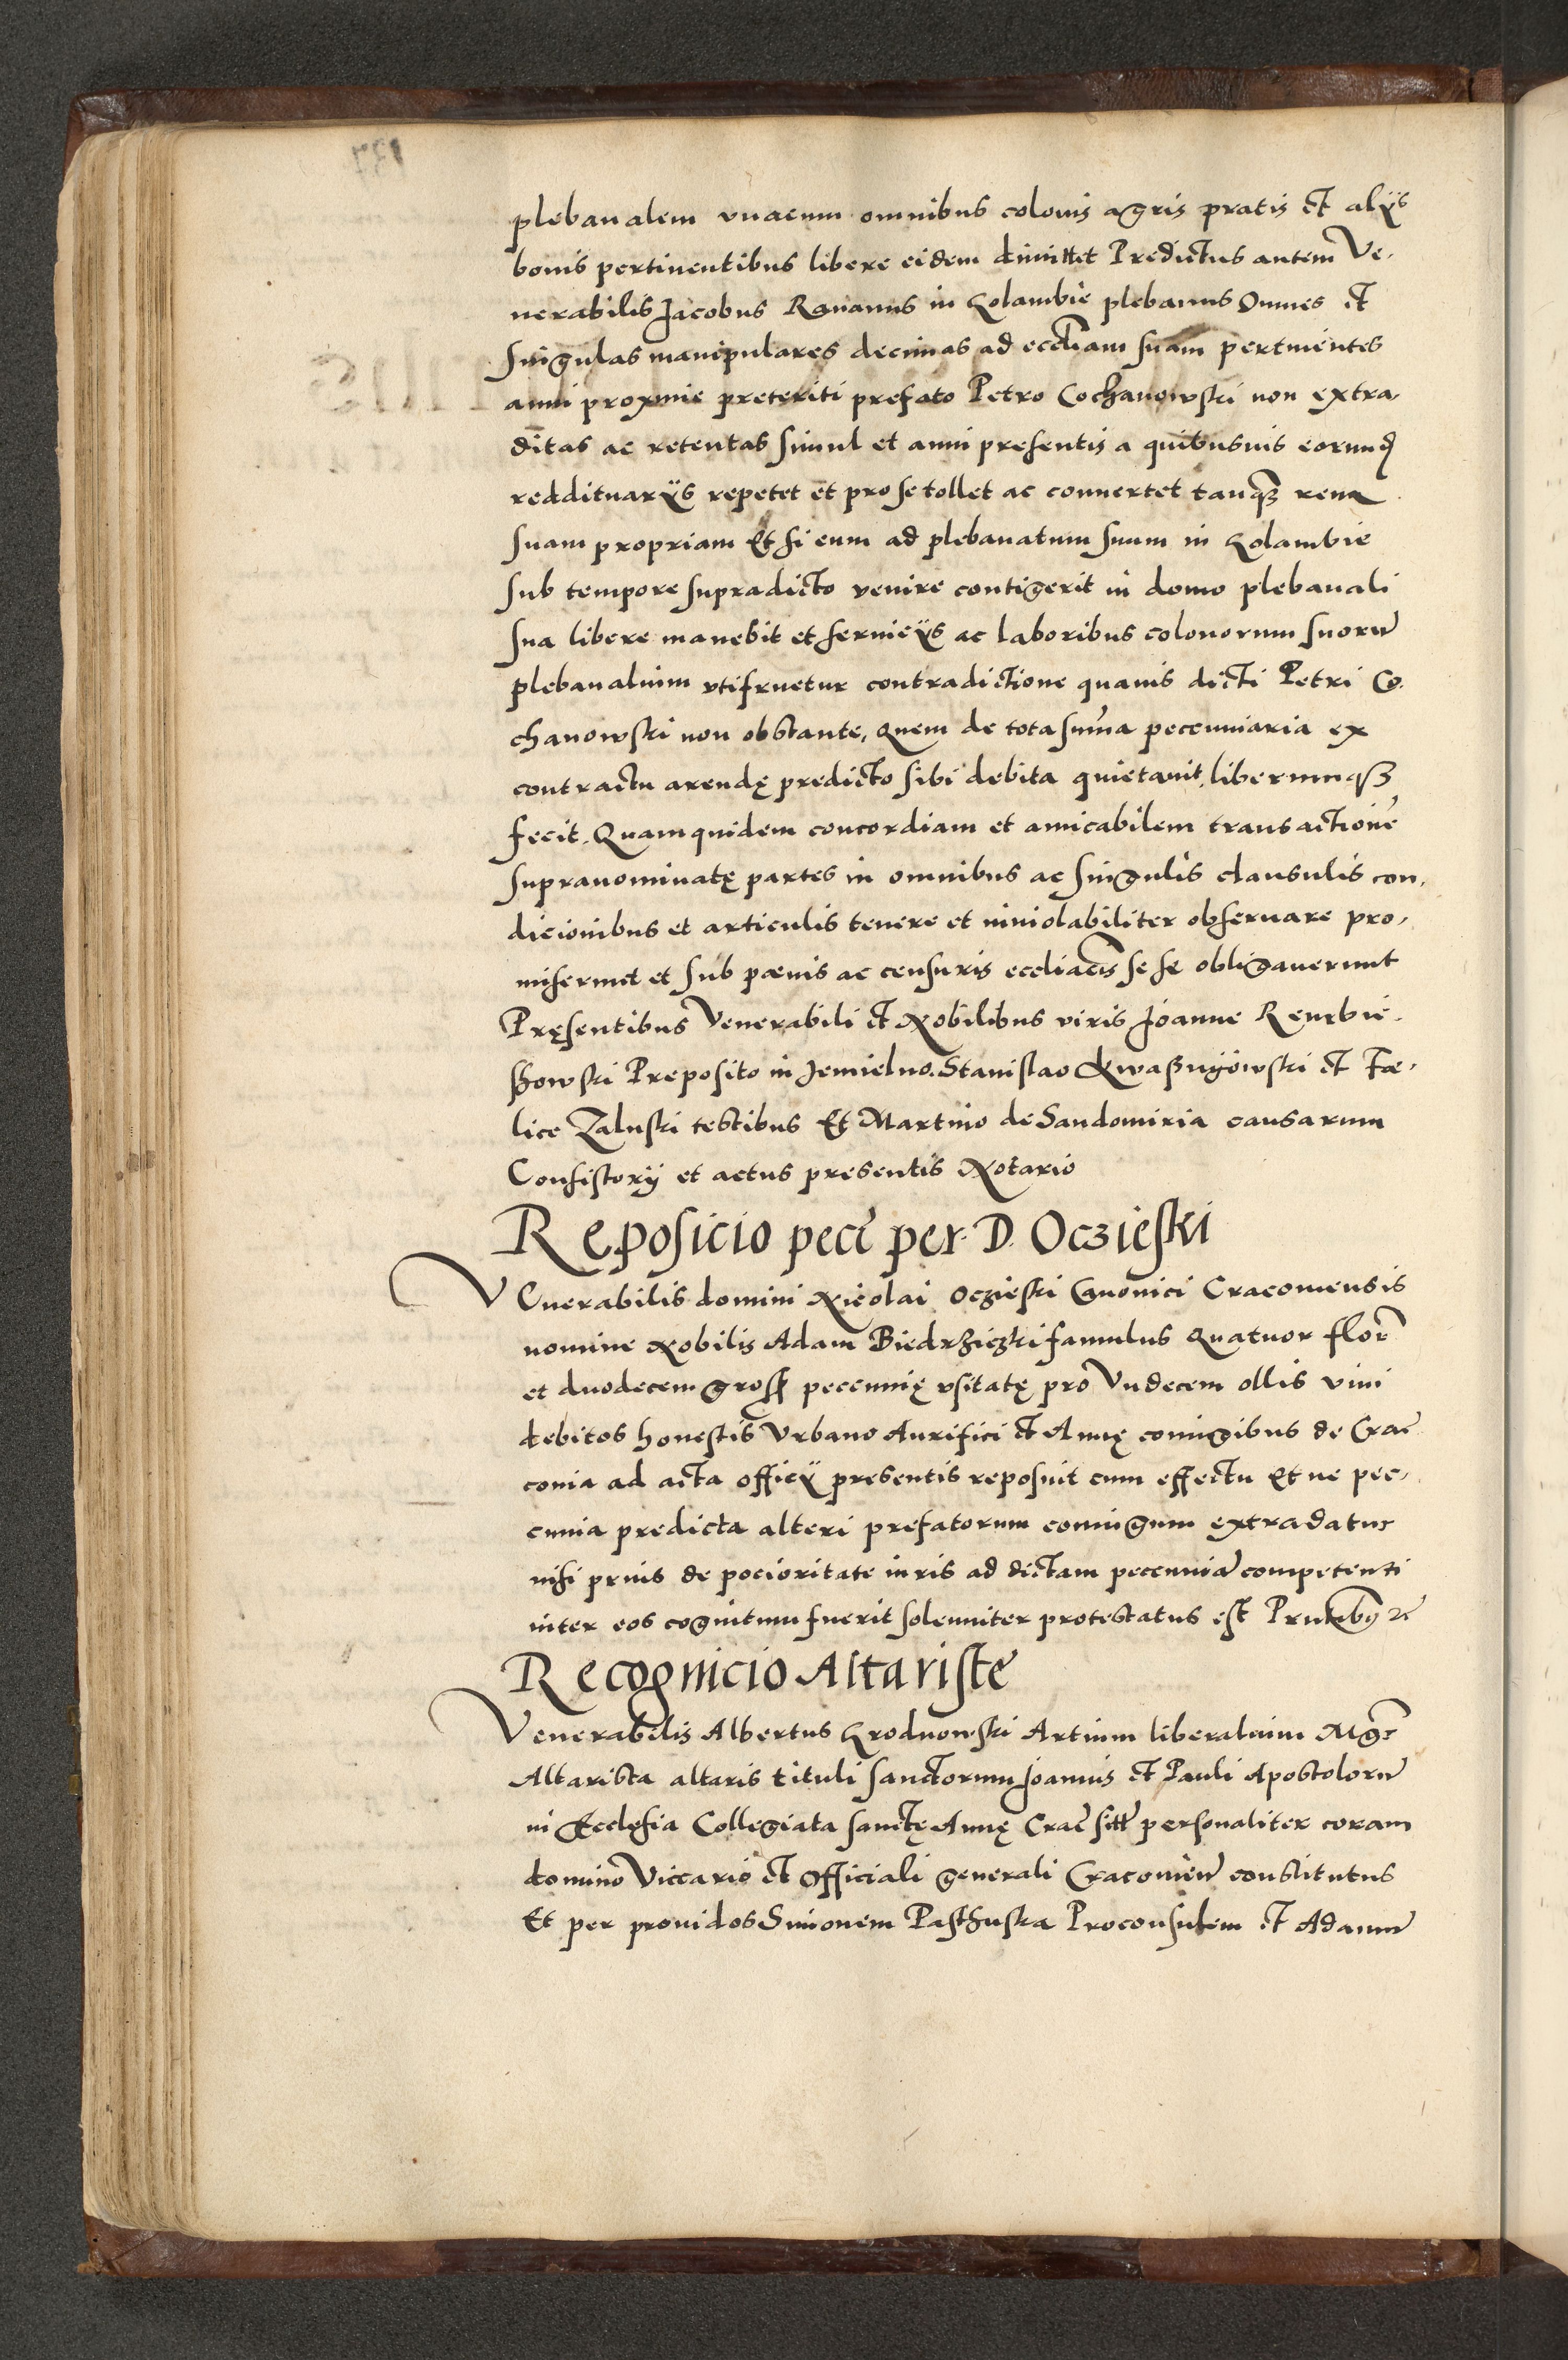 plebanalem vnacum omnibus colonis agris pratis et alÿs
bonis pertinentibus libere eidem dimittet Predictus autem Ve-
nerabilis Jacobus Rananus in Golambie plebanus Omnes et
singulas manipulares decimas ad eccliam suam pertinentes
anni proxime preteriti prefato Petro Cochanowski non extra-
ditas ac retentas simul et anni presentis a quibusuis eorund
reddituarÿs repetet et pro se tollet ac conuertet tanqʒ rem
suam propriam Et si eum ad plebanatum suum in Golambie
sub tempore supradicto venire contigerit in domo plebanali
sua libere manebit et seruicÿs ac laboribus colonorum suorum
plebanalium vtifruetur contradictione quauis dicti Petri Co-
chanowski non obstante, quem de tota summa pecunniaria ex
contractu arendę predicto sibi debita quietauit liberumqʒ
fecit. Quamquidem concordiam et amicabilem transactione
supranominatę partes in omnibus ac singulis clausulis con-
dicionibus et articulis tenere et inuiolabiliter obseruare pro-
miserunt et sub pœnis ac censuris eccliacis sese obligauerunt
Pręsentibus Venerabili et Nobilibus viris Joanne
Preposito in Jemielno. Stanislao et Fæ-
lice Zaluski testibus Et Martino de Sandomiria causarum
Consistorÿ et actus presentis Notario
Reposicio peci per D. Oczieski
Venerabilis domini Nicolai Oczieski Canonici Cracouiensis
nomine Nobilis Adam Biedrziczki famulus quatuor flor
et duodecem gross pecunnię vsitatę pro Vndecem ollis vini
debitos honestis Vrbano Aurifici et Annę coniugibus de Cra-
couia ad acta officÿ presentis reposuit cum effectu Et ne pec-
cunia predicta alteri prefatorum coniugum extradatur
nisi prius de pocioritate iuris ad dictam pecunnia competenti
inter eos cognitum fuerit solenniter protestatus est
Recognicio Altariste
Venerabilis Albertus Grodnowski Artium liberalium Mgr
Altarista altaris tituli sanctorum Joannis et Pauli Apostolorum
in Ecclesia Collegiata sanctę Annę Crac sitt personaliter coram
domino Viccario et Officiali generali Cracouien constitutus
Et per prouidos Simonem Pasthuska Proconsulem et Adamum